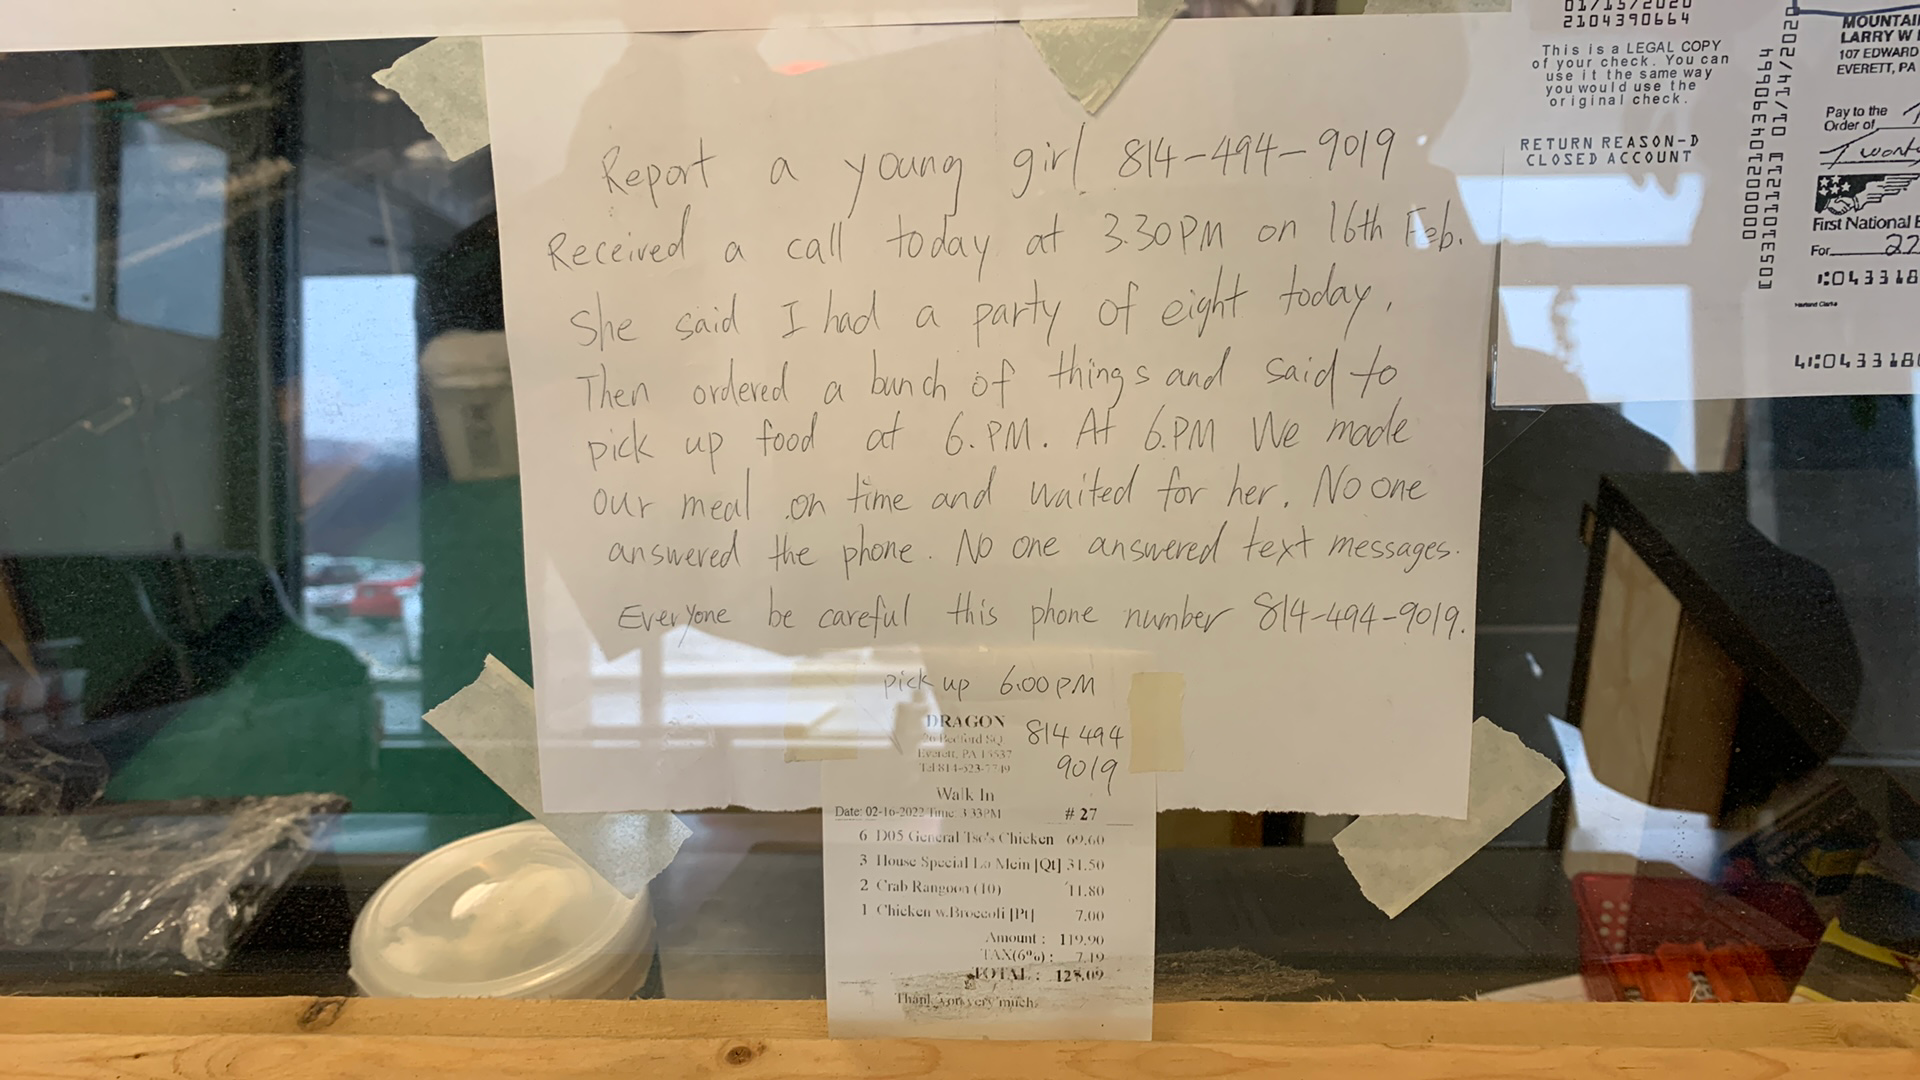 Report a young girl 814-494-9019
Received a call today at 3.30PM on 16th Feb.
She said I had a party of eight today.
Then ordered a bunch of things and said to
pick up food at 6.PM. At 6.PM We made
our meal on time and waited for her. No one
answered the phone. No one answered text messages.
Everyone be careful this phone number 814-494-9019.
pick up 6:00PM
DRAGON
26 Bedford SQ
Everett, PA 15537
Tel:814-623-7749
814 494
9019
Walk In
Date: 02-16-2022 Time: 3:33PM # 27
6 D05 General Tso's Chicken 69.60
3 House Special Lo Mein [Qt] 31.50
2 Crab Rangoon (10) 11.80
1 Chicken w.Broccoli [Pt] 7.00
Amount : 119.90
TAX(6%) : 7.19
TOTAL :
Thank you very much.
01/15/2020
2104390664
This is a LEGAL COPY
of your check. You can
use it the same way
you would use the
original check.
RETURN REASON-D
CLOSED ACCOUNT
LARRY W
107 EDWARD
EVERETT, PA
Pay to the
Order of
First National
For 22
Harland Clarke